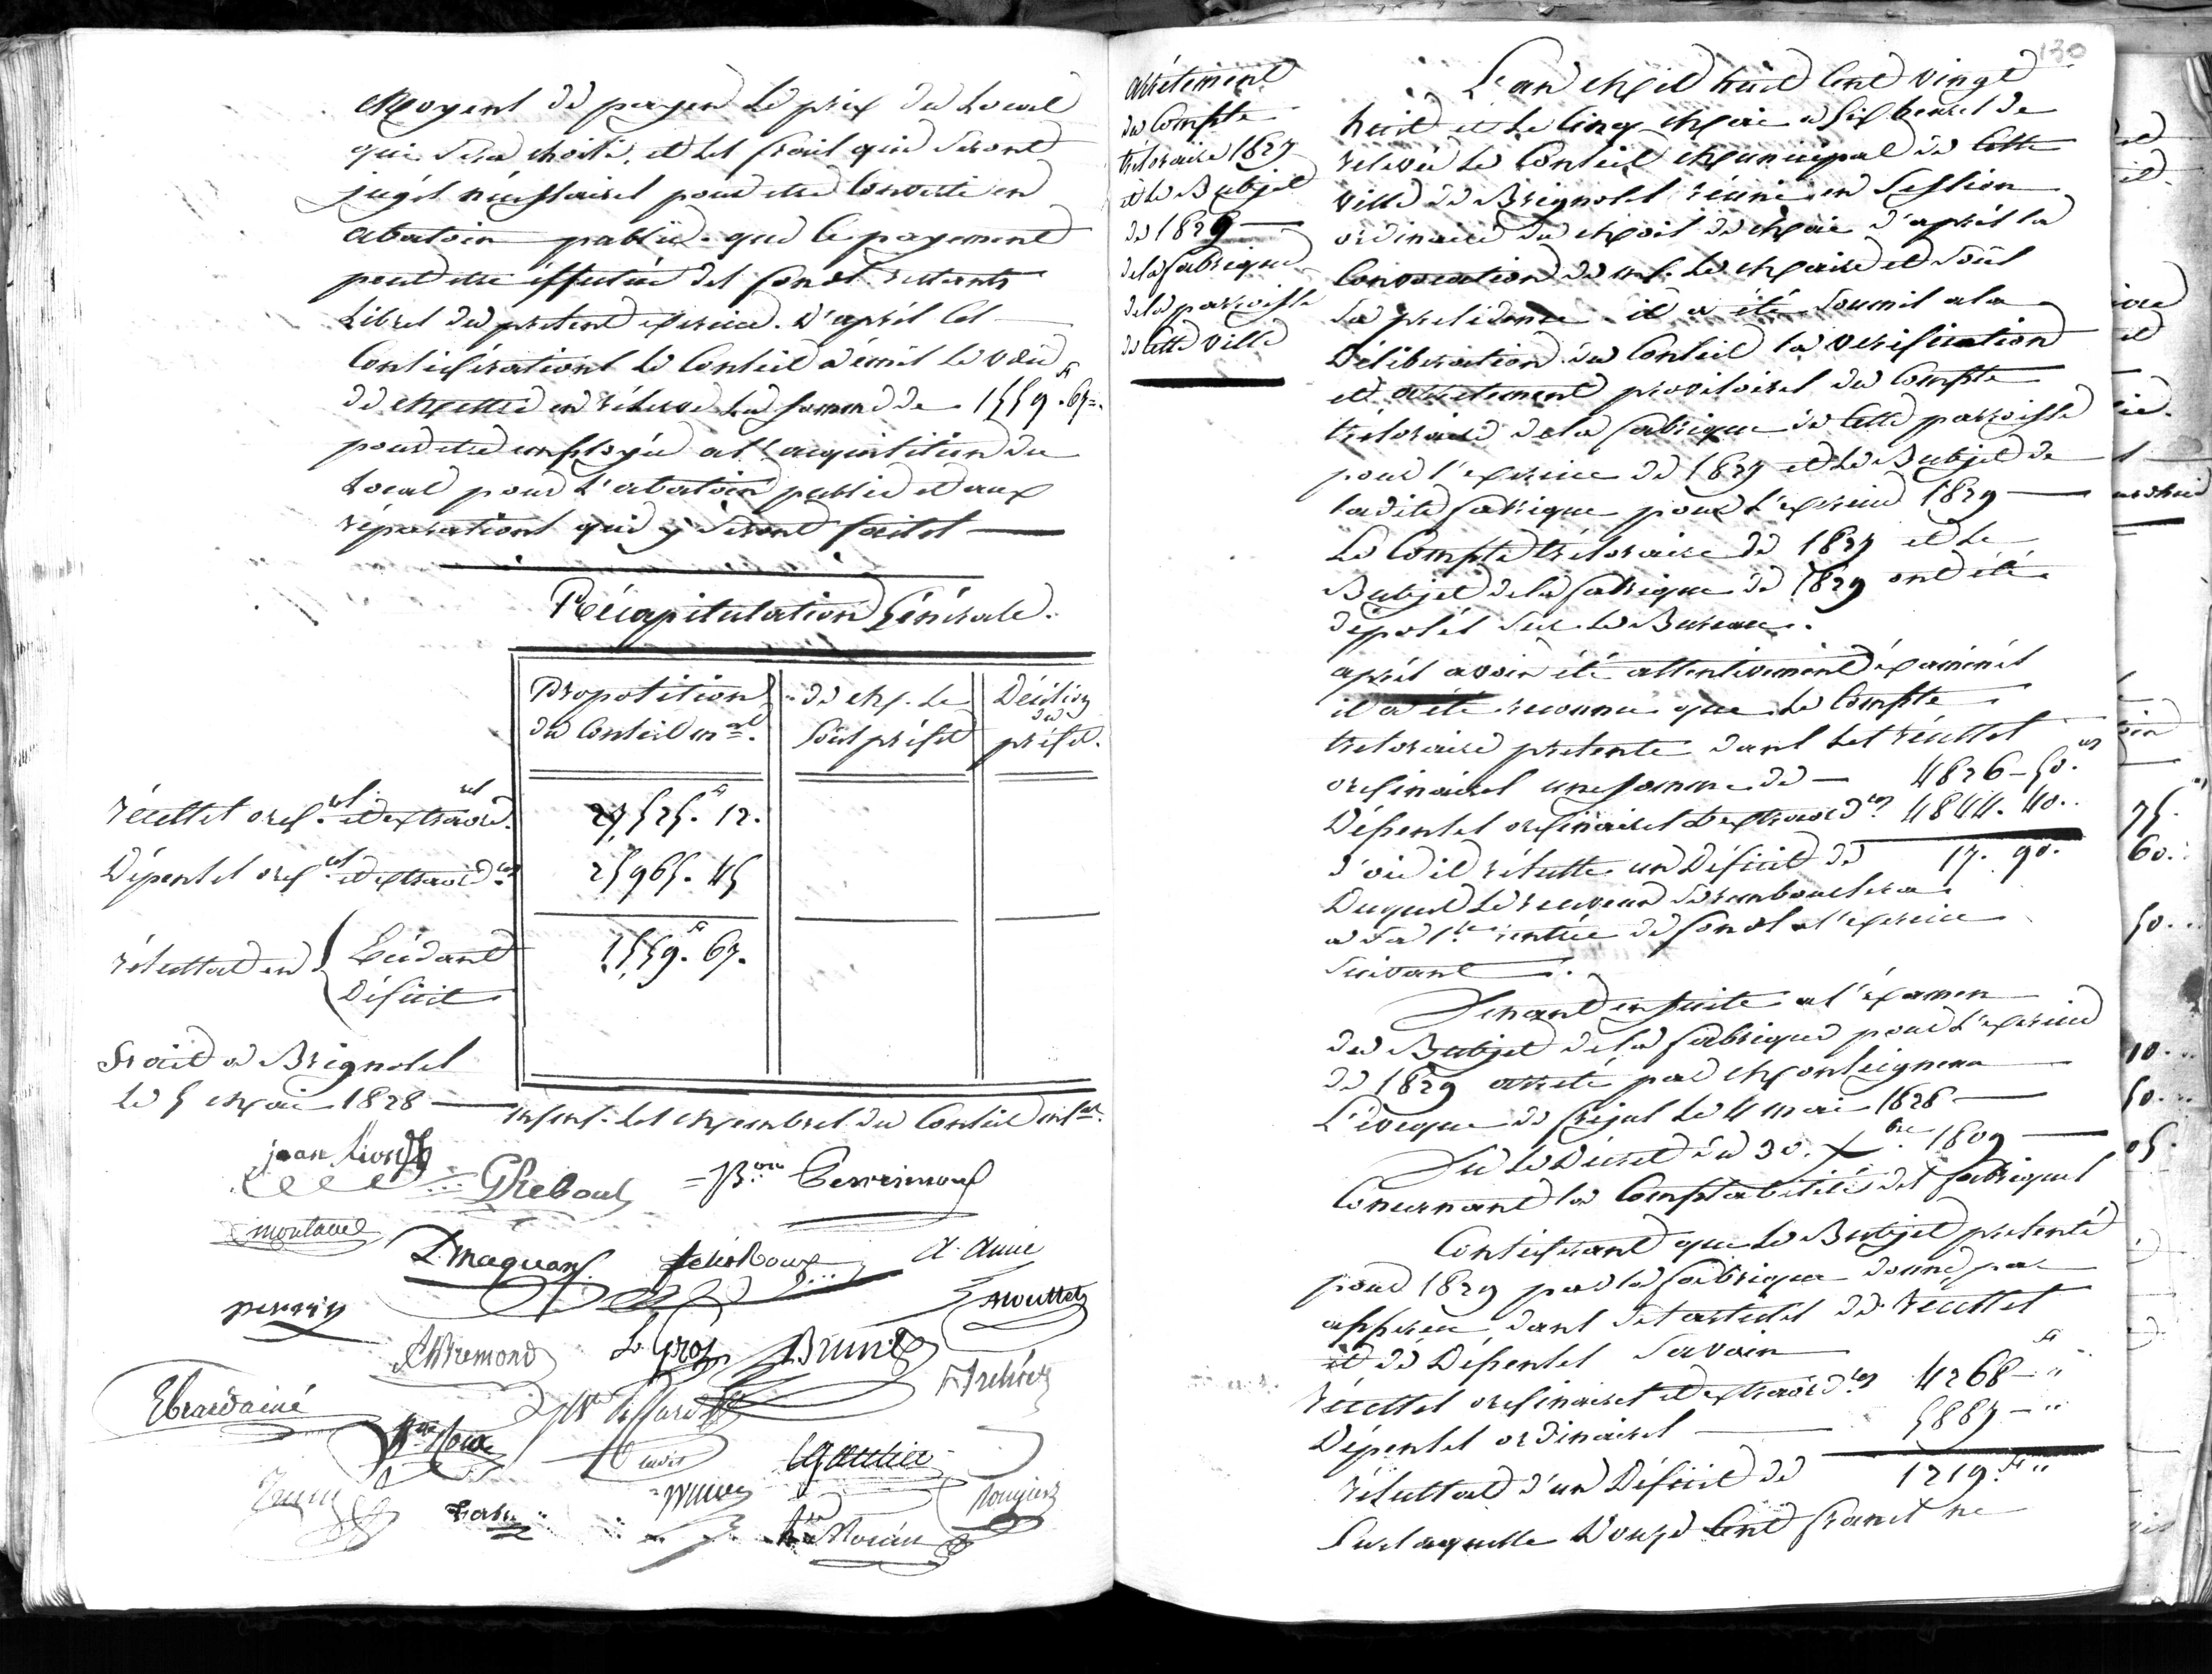 Moyens de payer le prix du Local
qui sera choisi, et les frais qui seront
jugés nécessaires pour etre converti en
abatoir public. que le payement
peut etre éffectué des fonds restants
libres du present exercice. D'après les
Considérations le Conseil a émis le vœu
de Mettre en réserve la somme de 1559 fr. 67 c.
pour etre employée a l'acquisition du
Local pour l'abatoir public et aux
réparations qui y seront faites
Récapitulation Générale.
Proposition du Conseil m.al
de M. le Sous préfet
Décision du préfet.
récettes ord.res et extraord.res 27,525 fr. 12.
Dépenses ord.res et extraord.res 25965. 45
résultat en Exédant 1,559 fr. 67.
Déficit
Fait a Brignoles
le 5 Mai 1828
MM. les Membres du Conseil m.al
jean Lion
G Reboul
B.on
Montaud
L. Maquan
felix Roux
A. Amic
perrin
A Bremond
L. Gros
Brunet
Ebrard ainé
Gautier
Rougier
arrêtement
du Compte
trésoraire 1827
et le Butjet
de 1829
de la fabrique
de la parroisse
de cette ville
130
L'an Mil huit Cent vingt
huit et le Cinq Mai a six heures de
relevée le Conseil Municipal de cette
ville de Brignoles réuni en Session
ordinaire du Mois de Mai d'après la
Convocation de M. le Maire et sous
sa presidence il a été soumis a la
Déliberation du Conseil la verification
et arretement provisoires du Compte
trésoraire de la fabrique de cette parroisse
pour l'exercice de 1827 et le Butjet de
ladite fabrique pour l'exercice 1829
Le Compte trésoraire de 1827 et le
Butjet de la fabrique de 1829 ont été
déposés sur le Bureau.
après avoir été attentivement éxaminés
il a été reconnu que le Compte
tresoraire presente dans les récettes
ordinaires une somme de 4826-50.
Dépenses ordinaires et extraord.res 4844. 40.
d'ou il résulte un Déficit de 17. 90.
Duquel le receveur se remboursera
a sa 1.re rentrée de fonds a l'exercice
suivant.
Venant ensuite a l'éxamen
du Butjet de la fabrique pour l'exercice
de 1829 arreté par Monseigneur
L'évêque de frejus le 4 mai 1828
Vu le Décret du 30. X.bre 1809
Concernant la Comptabilité des fabriques
Considérant que le Butjet presenté
pour 1829 par la fabrique donne par
apperçu dans les articles de récettes
et de Dépenses Savoir
récettes ordinaires et extraord.res 4268 fr "
Dépenses ordinaires 5887 - "
résultat d'un Déficit de 1219 fr "
Sur laquelle Douze Cent francs ne